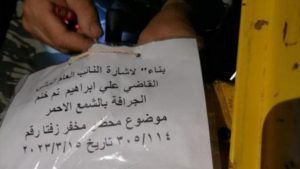 بناء" لاشارة النائب العام
القاضي علي ابراهيم تم ختم
الجرافة بالشمع الاحمر
موضوع محضر مخفر زفتا رقم
٣٠٥/١١٤ تاريخ ٢٠٢٣/٣/١٥